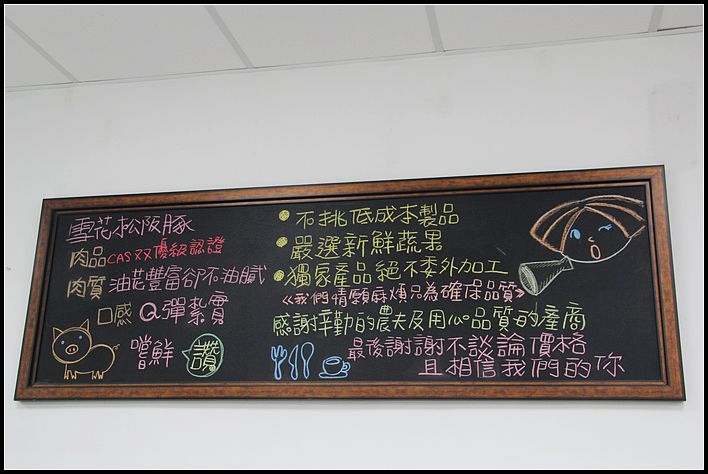 雪花松阪豚
肉品CAS双優級認證
肉質油花豐富卻不油膩
口感Q彈紮實
嚐鮮
讚
不挑低成本製品
嚴選新鮮蔬果
獨家產品絕不委外加工
《我們情願麻煩只為確保品質》
感謝辛勤的農夫及用心品質的產商
最後謝謝不談論價格
且相信我們的你